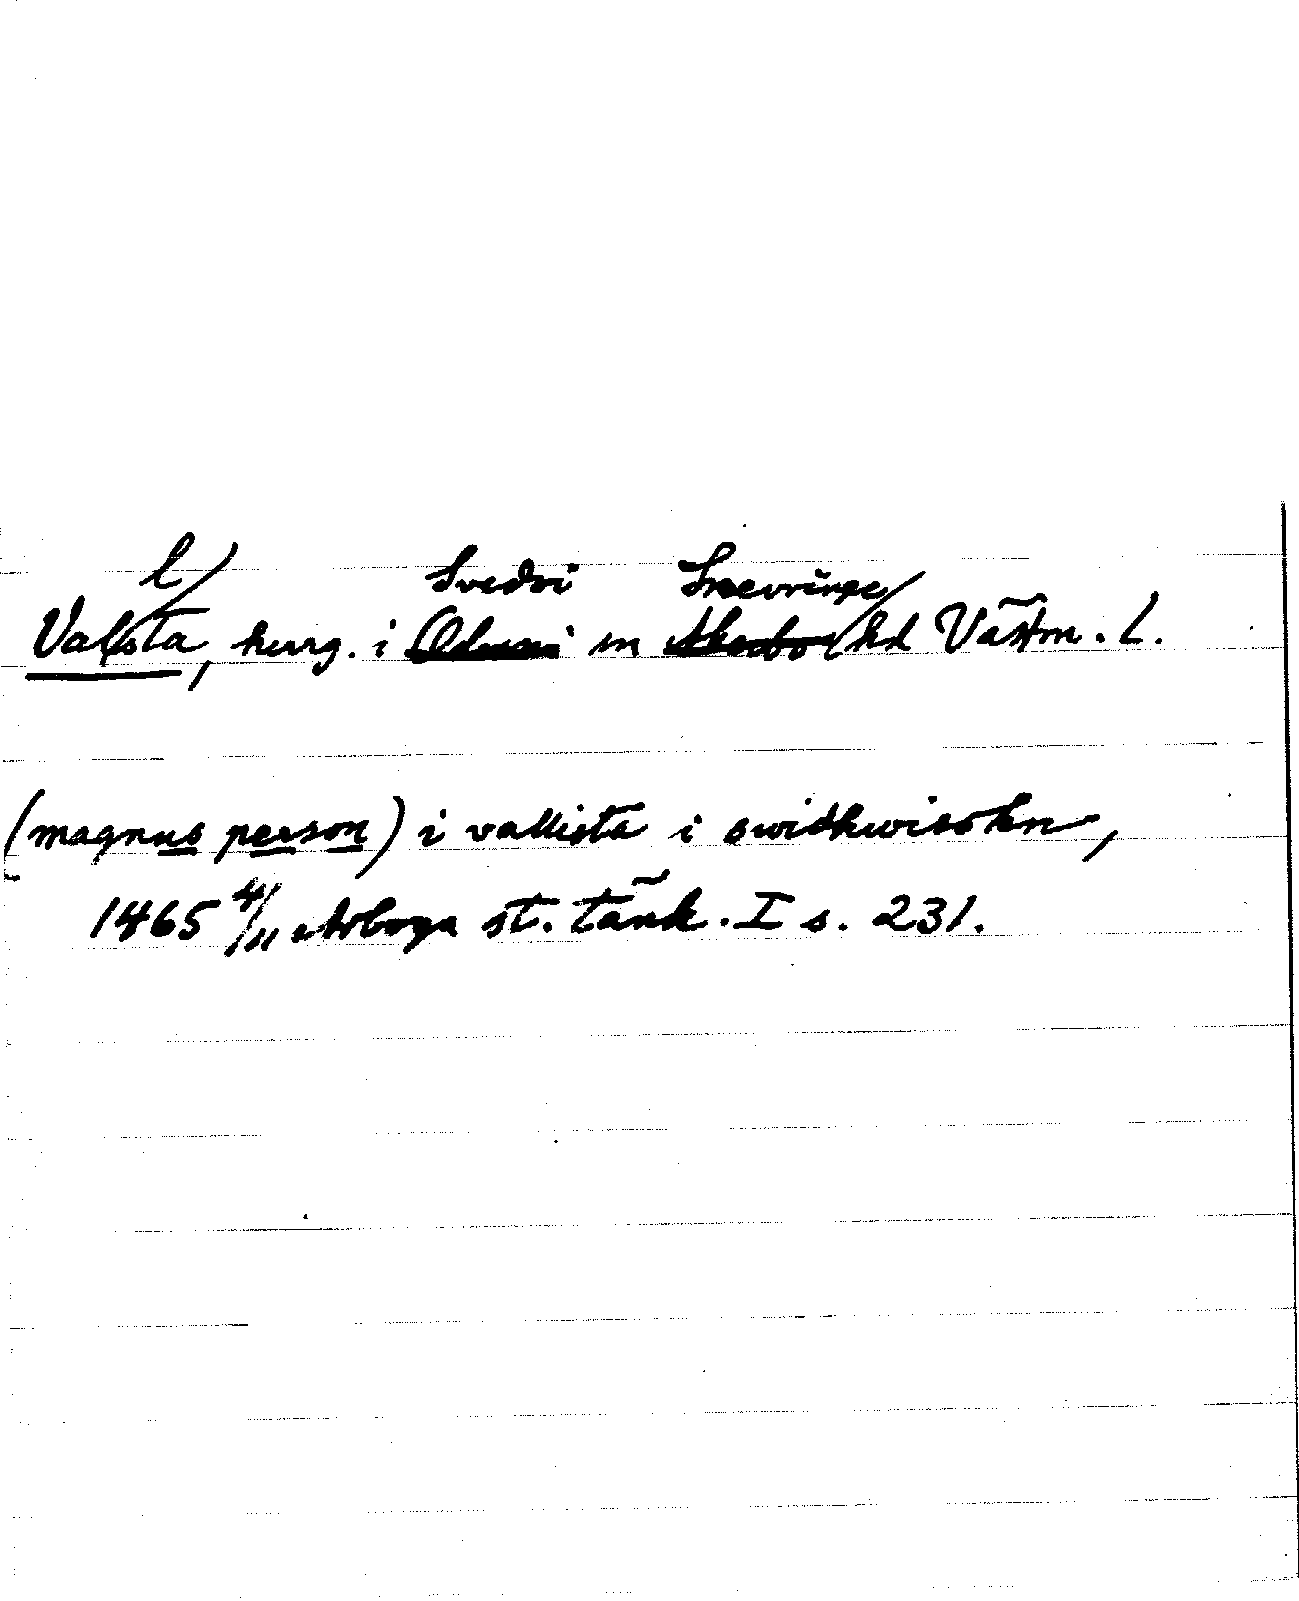 l/ Svedvi Snevringe/
Valsta, herrg. i Odensvi sn Åkerbo hd Västm. L.
(magnus person) i vallista i swidhwisokn,
1465 4/11 Arboga st. tänk. I s. 231.